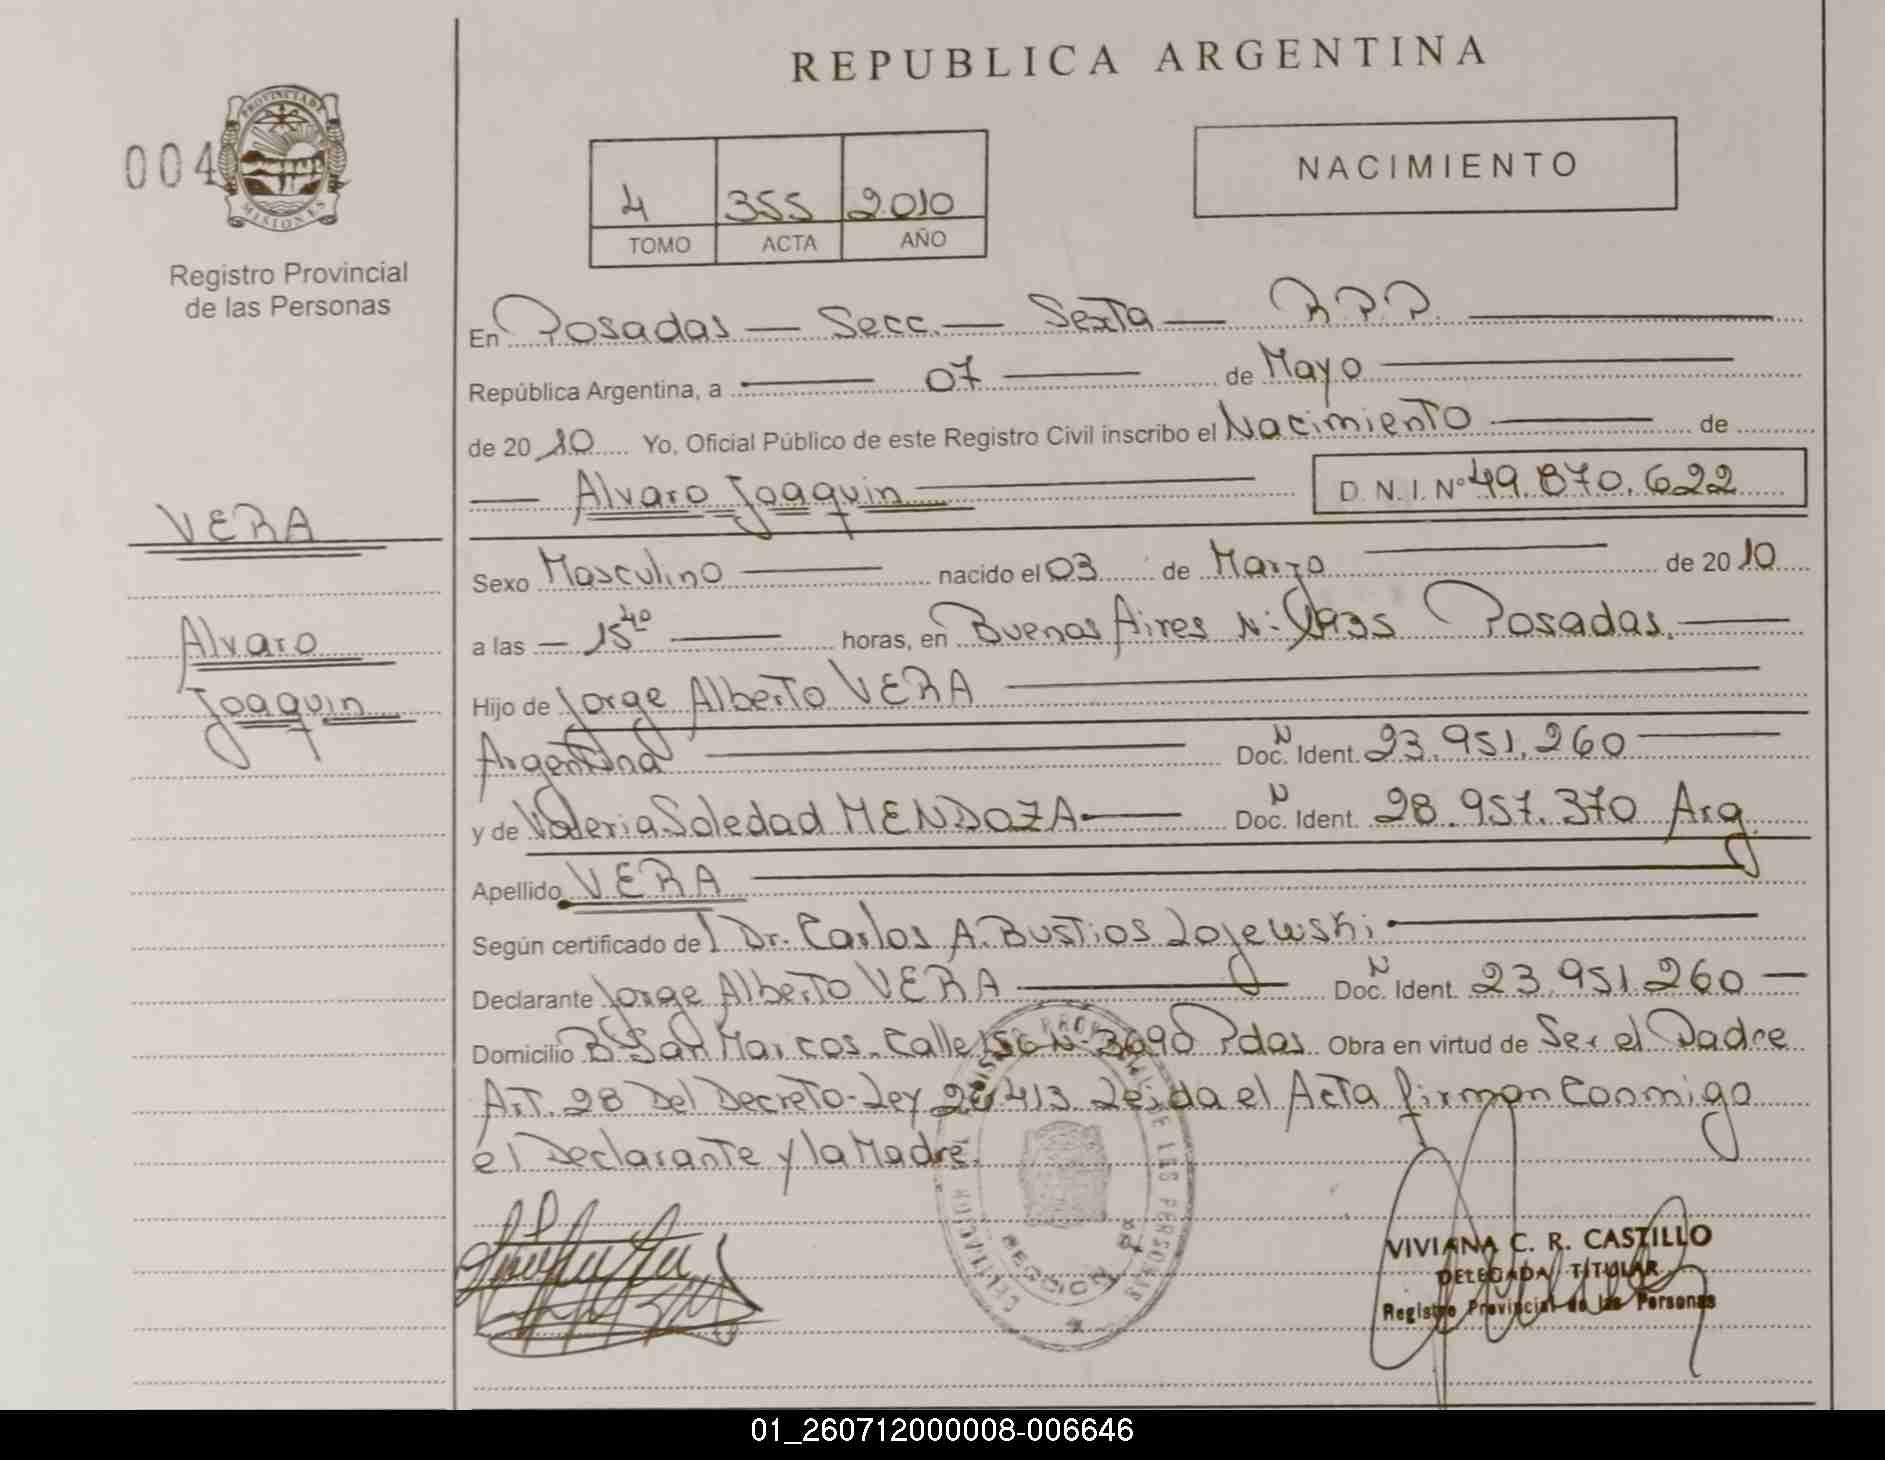 REPUBLICA ARGENTINA
004
PROVINCIA DE
MISIONES
Registro Provincial
de las Personas
4 355 2010
TOMO ACTA AÑO
NACIMIENTO
En Posadas — Secc. — Sexta — R.P.P.
República Argentina, a — 07 — de Mayo
de 2010 Yo, Oficial Público de este Registro Civil inscribo el Nacimiento — de
— Alvaro Joaquin — D.N.I. Nº 49.870.622
VERA
Alvaro
Joaquin
Sexo Masculino — nacido el 03 de Marzo — de 2010
a las — 15 40 — horas, en Buenos Aires Nº 1935 Posadas. —
Hijo de Jorge Alberto VERA —
Argentina — Doc. N Ident. 23.951.260 —
y de Valeria Soledad MENDOZA — Doc. N Ident. 28.957.370 Arg.
Apellido VERA —
Según certificado del Dr. Carlos A. Bustios Lojewski —
Declarante Jorge Alberto VERA — Doc. N Ident. 23.951.260 —
Domicilio Bº San Marcos. Calle Nº 3690 Pdas. Obra en virtud de Ser el Padre
Art. 28 Del Decreto-Ley Leida el Acta firman Conmigo
el Declarante y la Madre.
SECCION
DE LAS PERSONAS
VIVIANA C. R. CASTILLO
DELEGADA TITULAR
Registro Provincial de las Personas
01_260712000008-006646